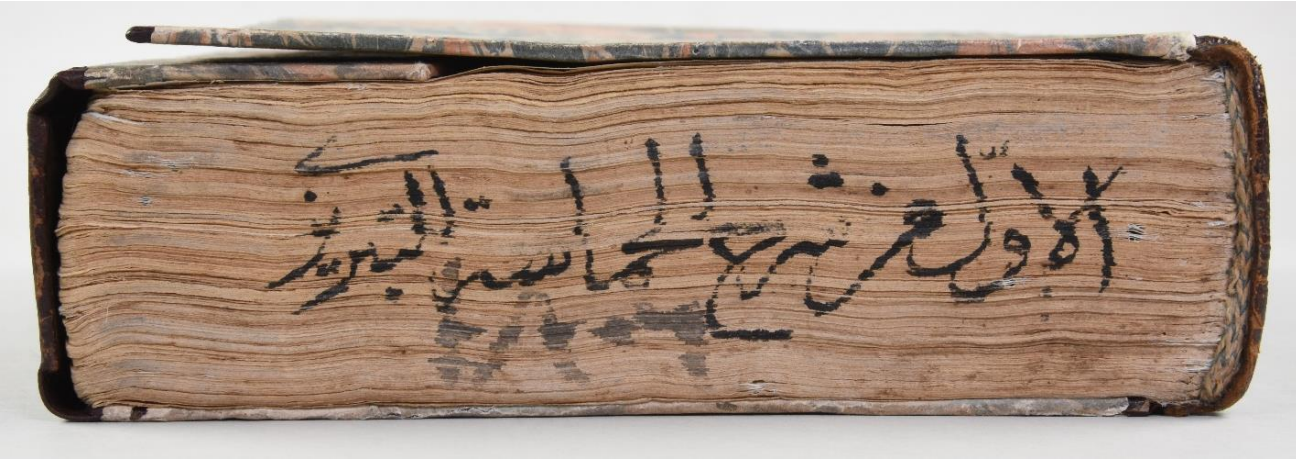 الاوّل من شرح الحماسة للتبريزي